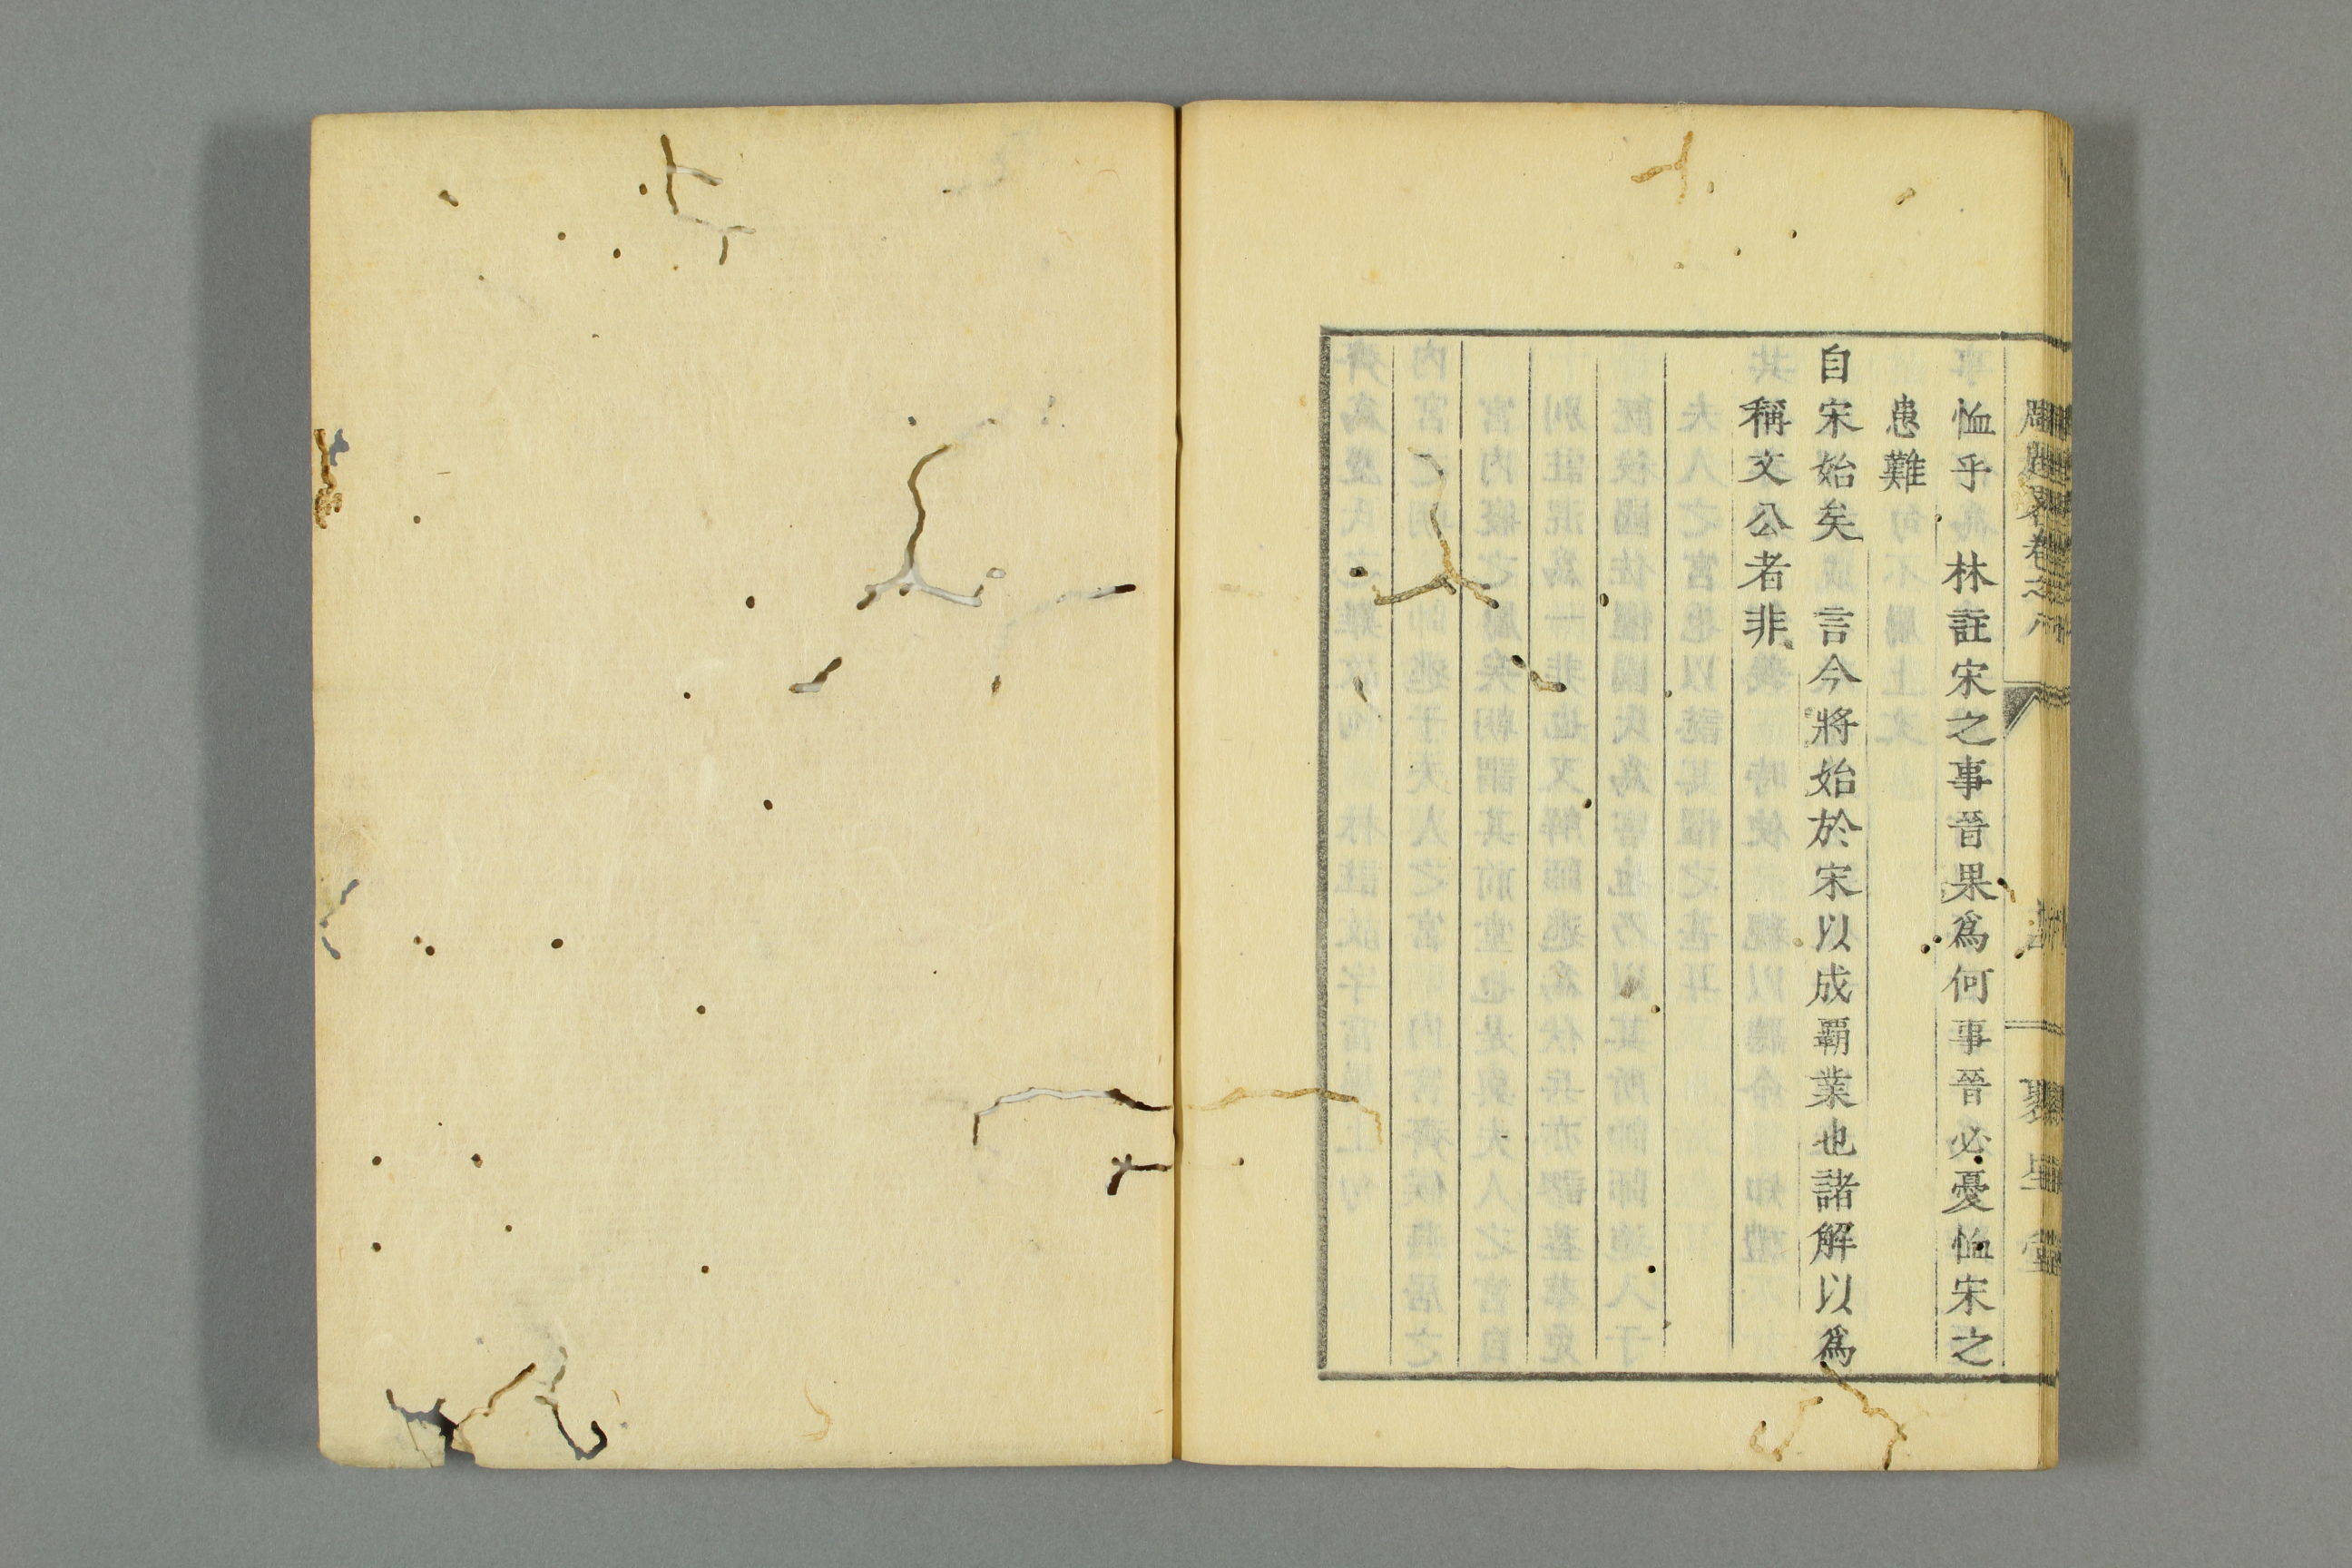 恤乎　林註宋之事晉果爲何事晉必憂恤宋之
患難
自宋始矣　言今將始於宋以成覇業也諸解以爲
稱文公者非
卷之八
聚星堂